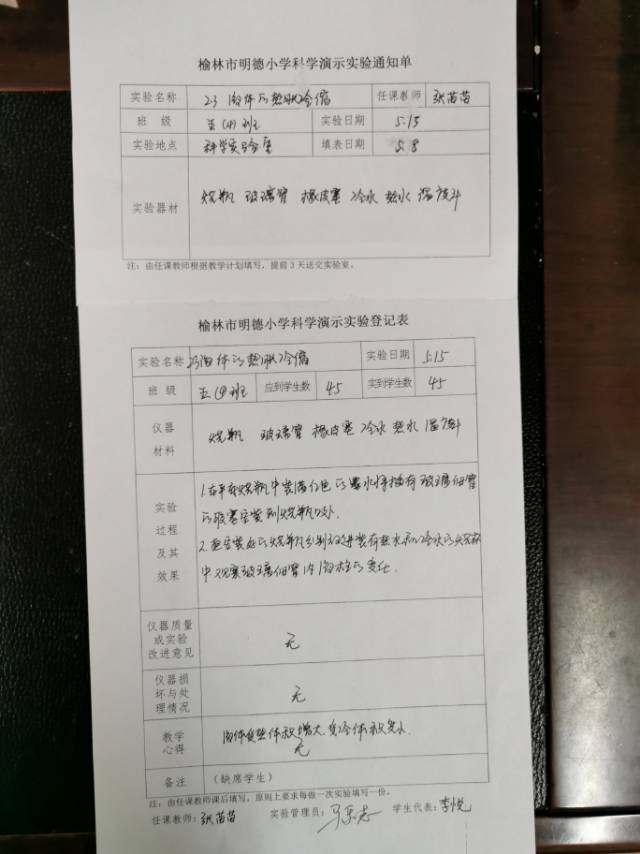 榆林市明德小学科学演示实验通知单
实验名称 23 液体的热胀冷缩 任课教师 张苗苗
班 级 五(4)班 实验日期 5.15
实验地点 科学实验室 填表日期 5.8
实验器材 烧瓶 玻璃管 橡皮塞 冷水 热水
注：由任课教师根据教学计划填写，提前3天送交实验室。
榆林市明德小学科学演示实验登记表
实验名称 23液体的热胀冷缩 实验日期 5.15
班 级 五(4)班 应到学生数 45 实到学生数 45
仪器
材料
烧瓶 玻璃管 橡皮塞 冷水 热水
实验
过程
及其
效果
1.在平底烧瓶中装满红色的墨水将插有玻璃细管
的胶塞安装到烧瓶口处.
2.把安装好的烧瓶分别放进装有热水和冷水的烧杯
中观察玻璃细管内液柱的变化.
仪器质量
或实验
改进意见
无
仪器损
坏与处
理情况
无
教学
心得
液体受热体积增大,受冷体积变小.
无
备注 （缺席学生）
注：由任课教师课后填写，原则上要求每做一次实验填写一份。
任课教师：张苗苗 实验管理员： 学生代表：李悦